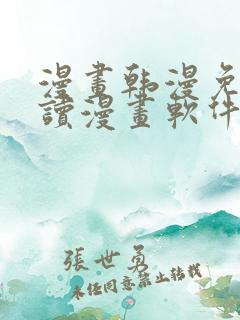 漫畫韩漫免
讀漫畫軟件
張世勇
未經同意禁止轉載